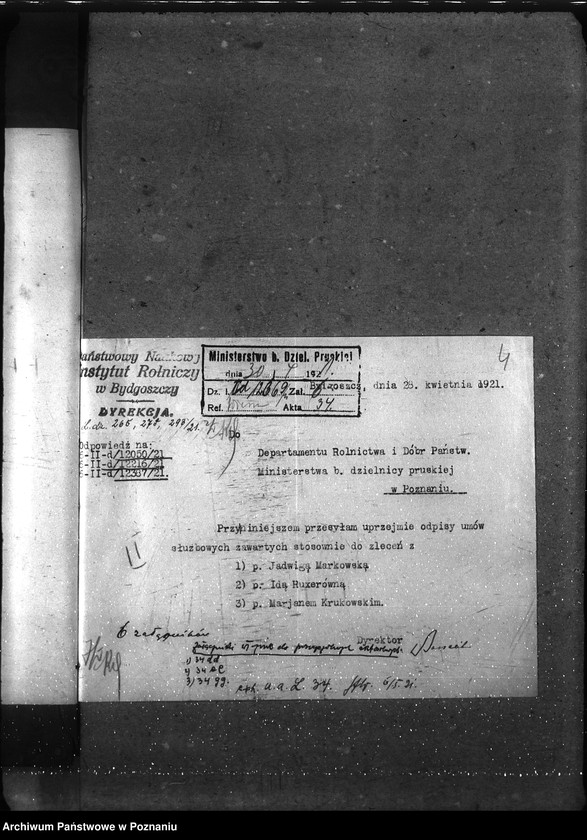 Państwowy Naukowy
Instytut Rolniczy
w Bydgoszczy
DYREKCJA.
l. dz. 265, 275, 298/21.
Odpowiedź na:
II-d/12050/21
II-d/12216/21
II-d/12367/21.
Ministerstwo b. Dziel. Pruskiej
dnia 30 / 4 1921.
Dz. i. Zal.
Ref. Akta 34.
4
Bydgoszcz, dnia 28. kwietnia 1921.
Do
Departamentu Rolnictwa i Dóbr Państw.
Ministerstwa b. dzielnicy pruskiej
w Poznaniu.
Przyniniejszem przesyłam uprzejmie odpisy umów
służbowych zawartych stosownie do zleceń z
1) p. Jadwigą Markowską
2) p. Idą Ruxerówną
3) p. Marjanem Krukowskim.
6 załączników
Dyrektor
1) 34 dd
2) 34 ee
3) 34 gg.
a. a. L 34. 6/5. 21.
Archiwum Państwowe w Poznaniu